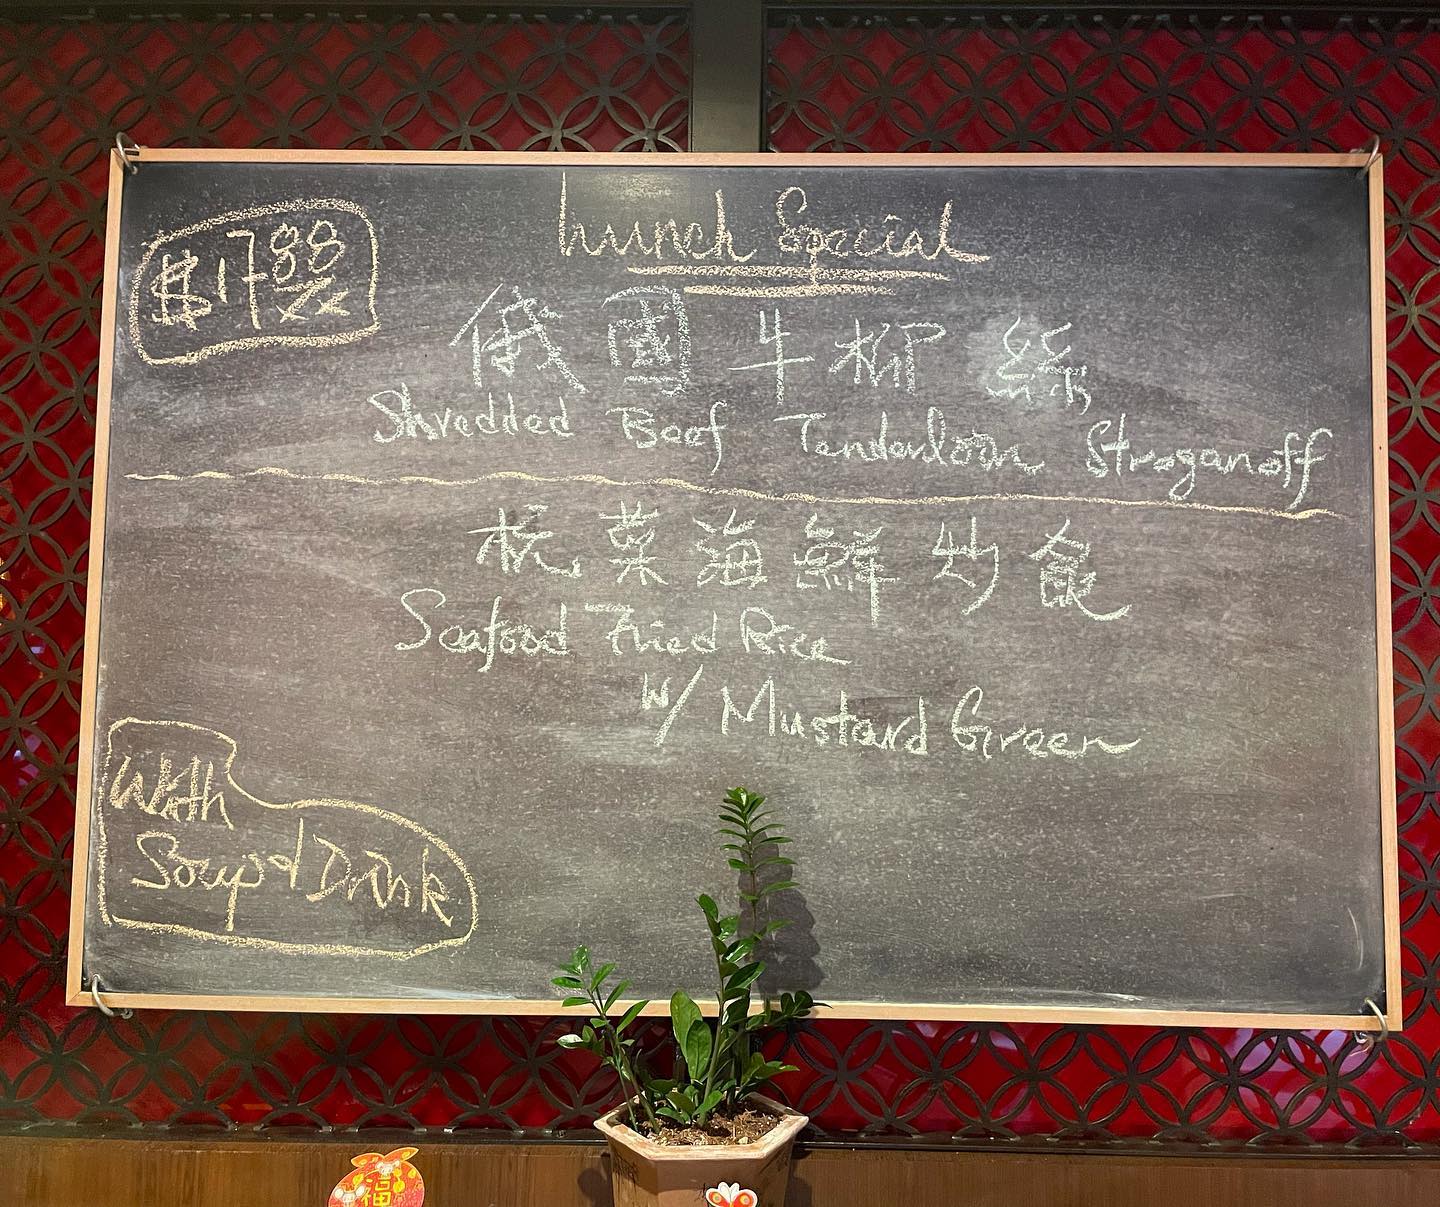 Lunch Special
$17.88
俄國牛柳絲
Shredded Beef Tenderloin Stroganoff
欖菜海鮮炒飯
Seafood Fried Rice
W/ Mustard Green
With
Soup & Drink
福